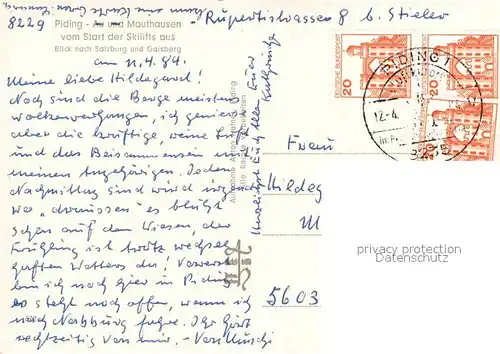 Schaun aus Karte Gow. Zimmer,
8229
Piding - Au und Mauthausen - Rupertistrasse 8 b. Stieler
vom Start der Skilifts aus
Blick nach Salzburg und Gaisberg
am 11.4.84.
Meine liebe Hildegard!
Noch sind die Berge meistens
wolkenverhangen, ich geniesse
aber die kräftige, reine Luft
und das Beisammensein mit
meinen Angehörigen. Jeden
Nachmittag sind wir irgend-
wo "draussen" es blüht
schon auf den Wiesen, der
Frühling ist trotz wechsel-
haften Wetters da! Vorerst
bin ich noch hier in Piding
es steht noch offen, wann ich
nach Nabburg fahre. Ihr hört
rechtzeitig von mir. -
Herzlichst Euch allen Eure
Frau
Hildeg
M
5603
DEUTSCHE BUNDESPOST
20
PIDING 1
12-4
8235
privacy protection
Datenschutz